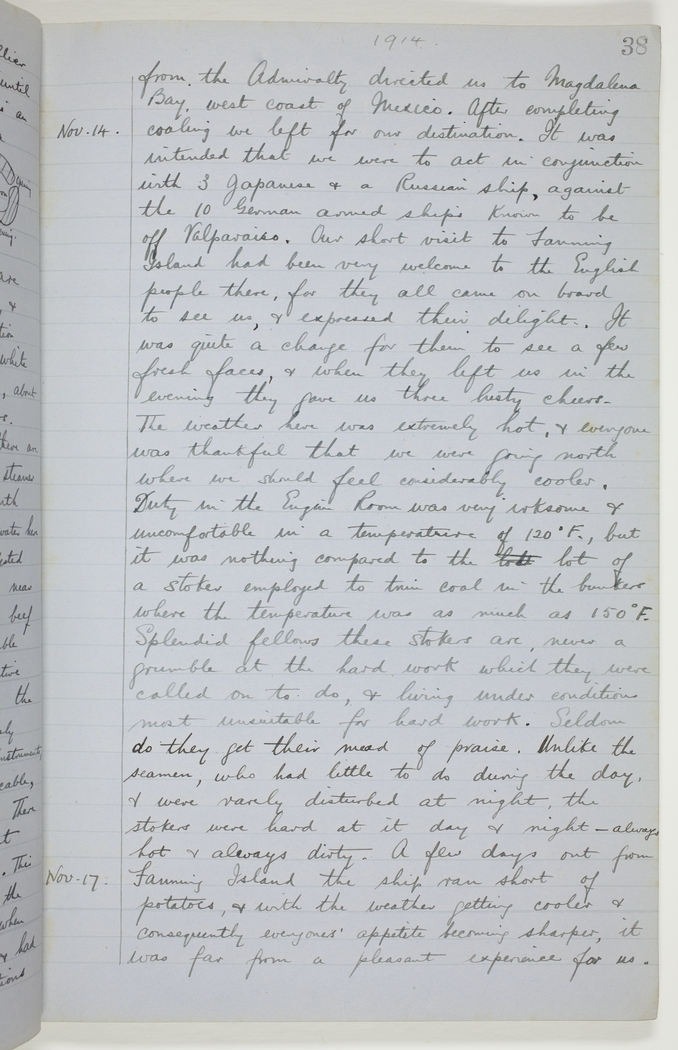 1914.
38
from the Admiralty directed us to Magdalena
Bay, west coast of Mexico. After completing
Nov. 14. coaling we left for our destination. It was
intended that we were to act in conjunction
with 3 Japanese & a Russian ship, against
the 10 German armed ships known to be
off Valparaiso. Our short visit to Fanning
Island had been very welcome to the English
people there, for they all came on board
to see us, & expressed their dilight. It
was quite a change for them to see a few
fresh faces, & when they left us in the
evening they gave us three lusty cheers.
The weather here was extremely hot, & everyone
was thankful that we were going north
where we should feel considerably cooler.
Duty in the Engine Room was very irksome &
uncomfortable in a temperature of 120°F., but
it was nothing compared to the lot of
a stoker employed to trim coal in the bunkers
where the temperature was as much as 150°F.
Splendid fellows these stokers are, never a
grumble at the hard work which they were
called on to do, & living under conditions
most unsuitable for hard work. Seldom
do they get their mead of praise. Unlike the
seamen, who had little to do during the day,
& were rarely disturbed at night, the
stokers were hard at it day & night – always
hot & always dirty. A few days out from
Nov. 17. Fanning Island the ship ran short of
potatoes, & with the weather getting cooler &
consequently everyones' appetite becoming sharper, it
was far from a pleasant experience for us.